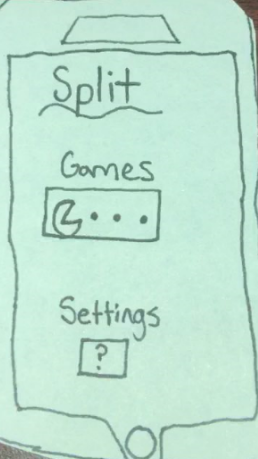 Split
Games
Settings
?